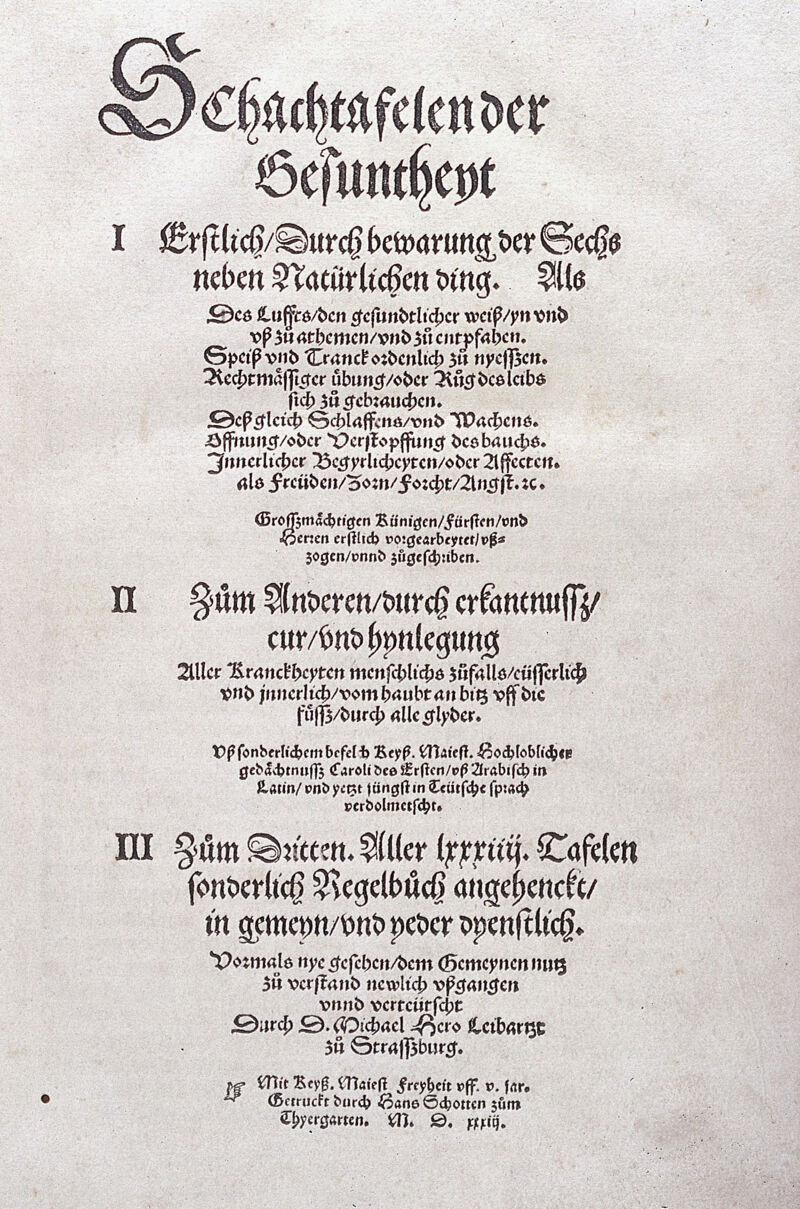 SChachtafelen der
Gesuntheyt
I Erstlich/Durch bewarung der Sechs
neben Natürlichen ding. Als
Des Luffts/den gesundtlicher weiß/yn vnd
vß zů athemen/vnd zů entpfahen.
Speiß vnd Tranck ordenlich zů nyesszen.
Rechtmässiger übung/oder Růg des leibs
sich zů gebrauchen.
Deß gleich Schlaffens/vnd Wachens.
Öffnung/oder Verstopffung des bauchs.
Innerlicher Begyrlicheyten/oder Affecten.
als Freüden/Zorn/Forcht/Angst.ꝛc.
Grosszmächtigen Künigen/Fürsten/vnd
Herren erstlich vorgearbeytet/vß⸗
zogen/vnnd zůgeschriben.
II Zům Anderen/durch erkantnussz/
cur/vnd hynlegung
Aller Kranckheyten menschlichs zůfalls/eüsserlich
vnd jnnerlich/vom haubt an bitz vff die
füssz/durch alle glyder.
Vß sonderlichem befelch Keyß. Maiest. Hochloblicher
gedächtnussz Caroli des Ersten/vß Arabisch in
Latin/vnd yetzt jüngst in Teütsche sprach
verdolmetscht.
III Zům Dritten. Aller lxxxiiij. Tafelen
sonderlich Regelbůch angehenckt/
in gemeyn/vnd yeder dyenstlich.
Vormals nye gesehen/dem Gemeynen nutz
zů verstand newlich vßgangen
vnnd verteütscht
Durch D. Michael Hero Leibartzt
zů Strasszburg.
☞ Mit Keyß. Maiest Freyheit vff. v. Jar.
Getruckt durch Hans Schotten zům
Thyergarten. M. D. xxxiij.